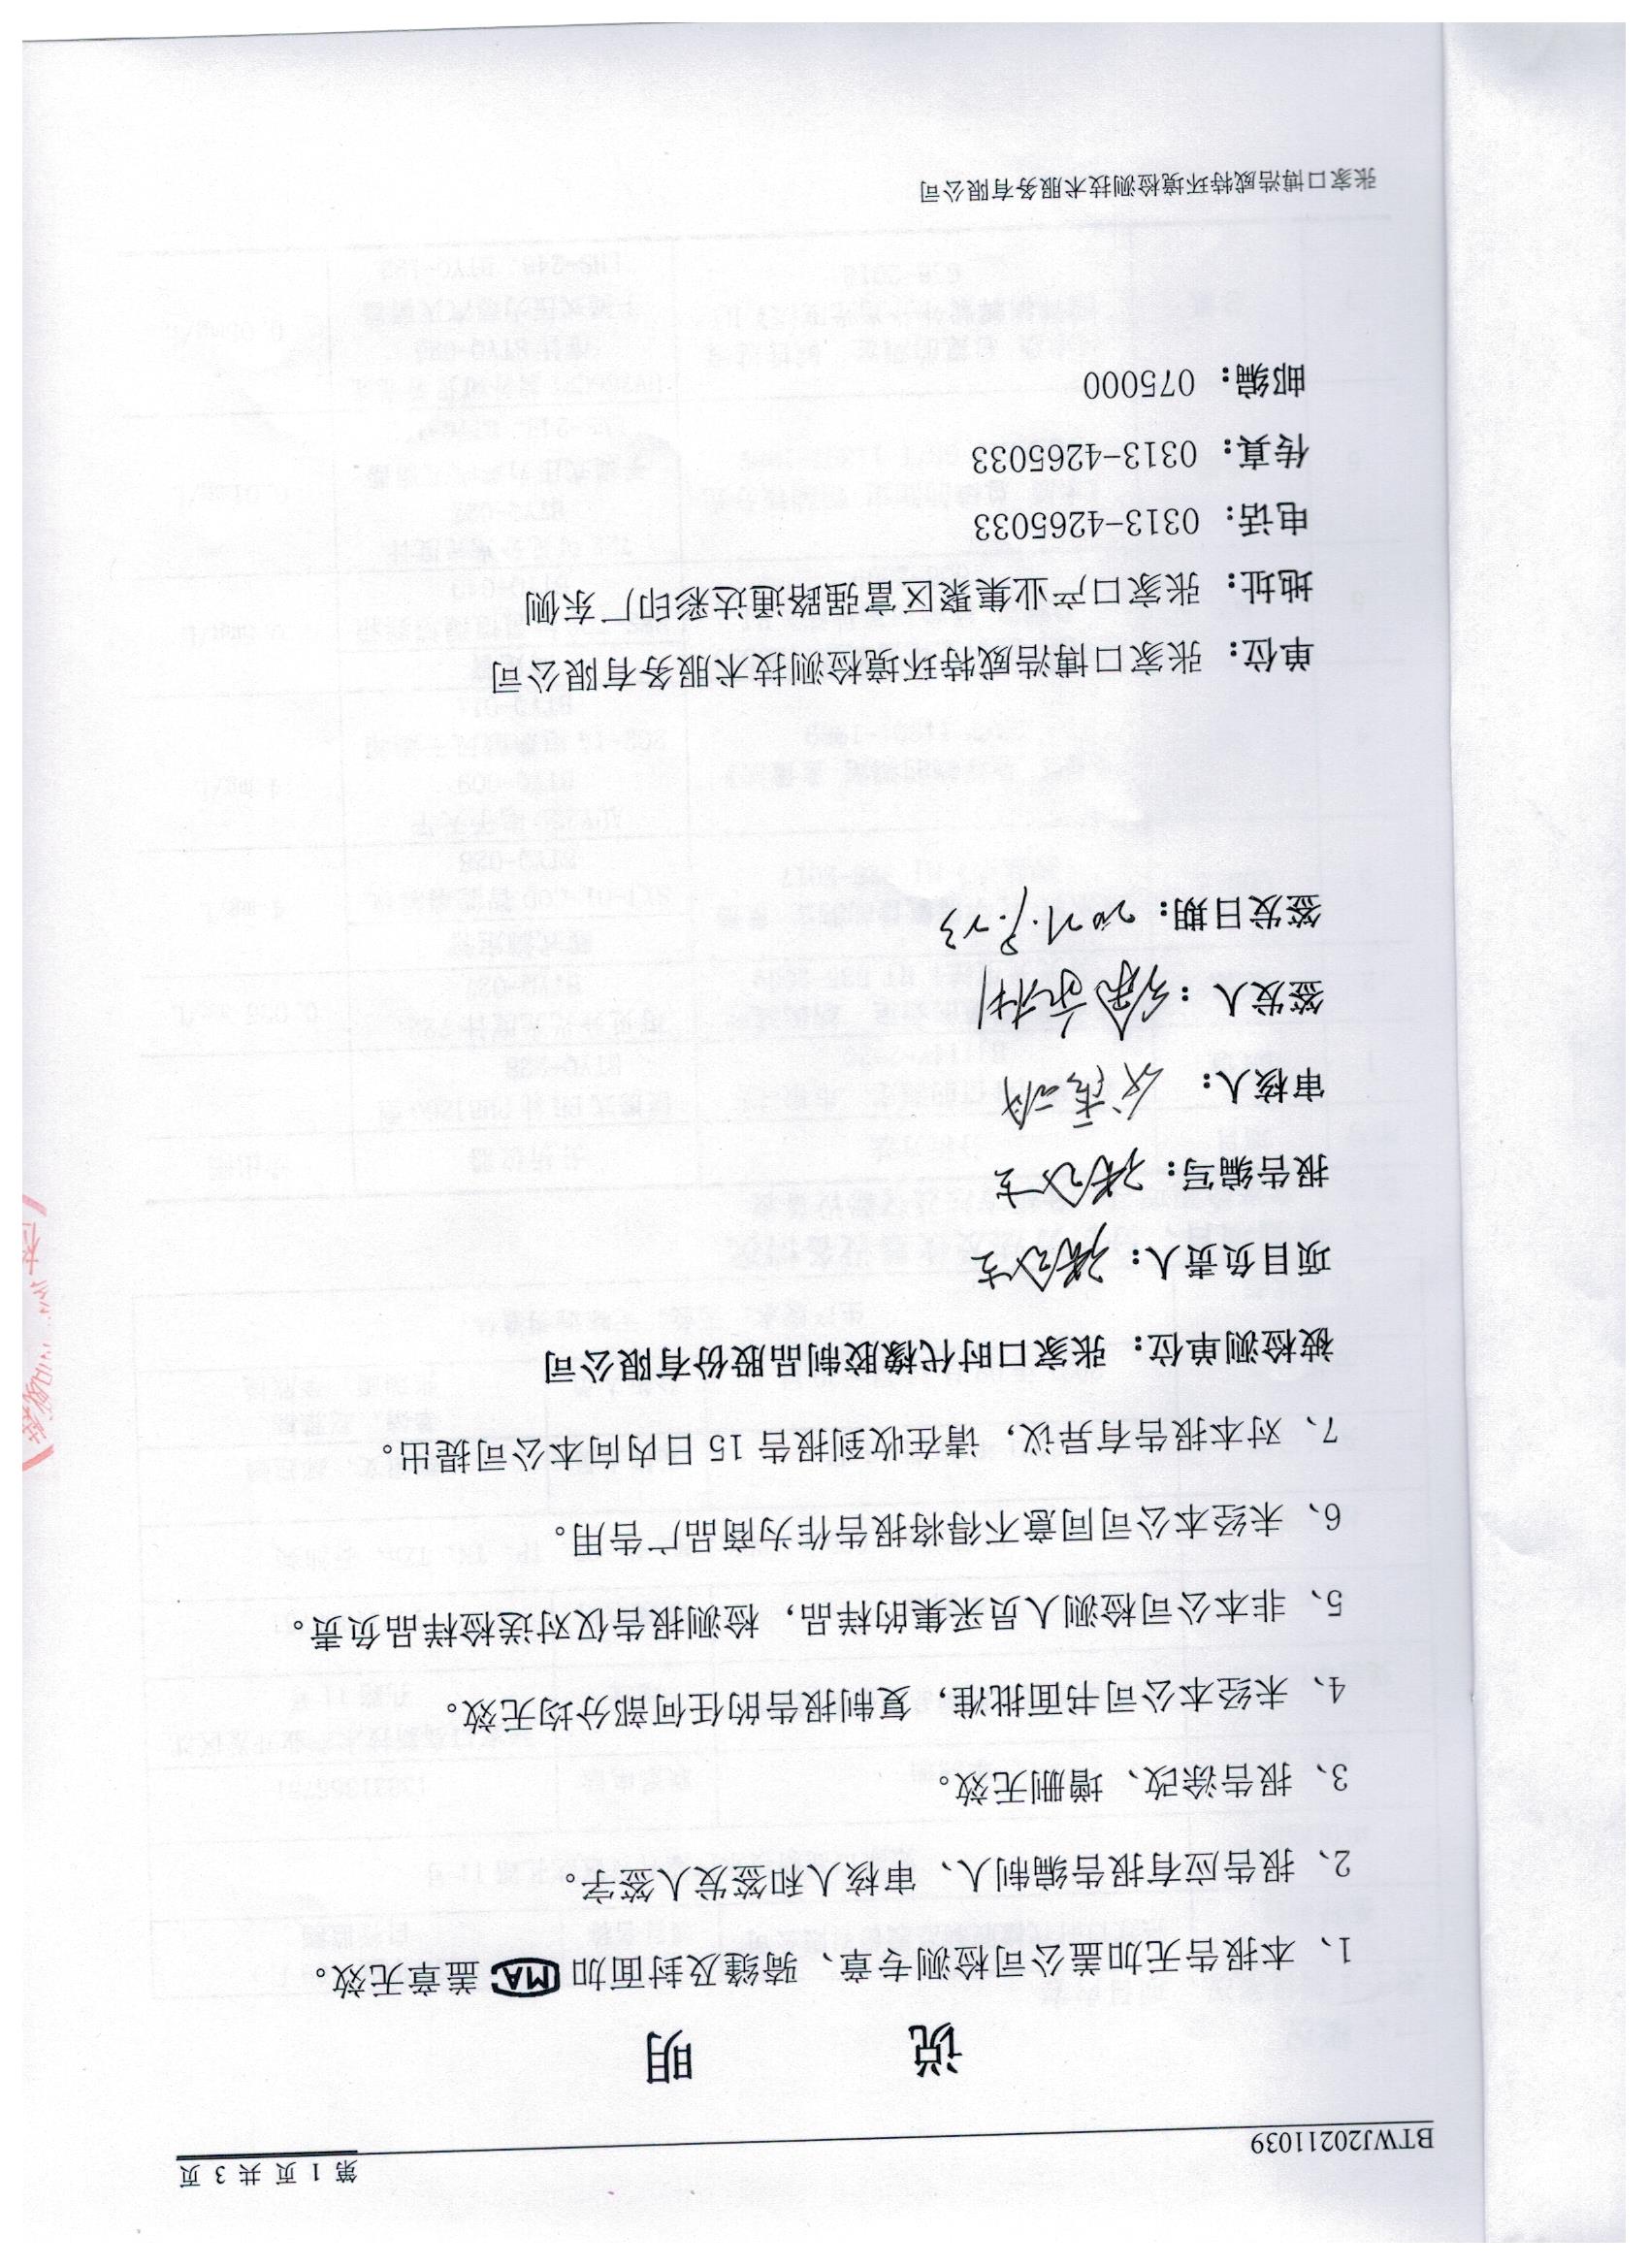 BTWJ20211039
第 1 页 共 3 页
说 明
1、本报告无加盖公司检测专章、骑缝及封面加 MA 盖章无效。
2、报告应有报告编制人、审核人和签发人签字。
3、报告涂改、增删无效。
4、未经本公司书面批准，复制报告的任何部分均无效。
5、非本公司检测人员采集的样品，检测报告仅对送检样品负责。
6、未经本公司同意不得将报告作为商品广告用。
7、对本报告有异议，请在收到报告 15 日内向本公司提出。
被检测单位：张家口时代橡胶制品股份有限公司
项目负责人：
报告编写：
审核人：
签发人：
签发日期：
单位：张家口博浩威特环境检测技术服务有限公司
地址：张家口产业集聚区富强路通达彩印厂东侧
电话：0313-4265033
传真：0313-4265033
邮编：075000
张家口博浩威特环境检测技术服务有限公司